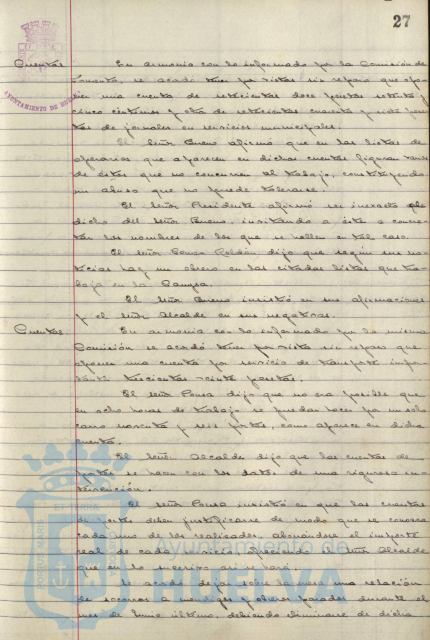 27
AYUNTAMIENTO DE HUELVA
Cuentas En armonia con lo informado por la Comisión de
Fomento, se acordó tener por vistas sin reparo que apa-
recen una cuenta de setecientas doce pesetas setenta y
cinco céntimos y otra de setecientas cuarenta y siete pese-
tas de jornales en servicios municipales.
El Señor Bueno afirmó que en las listas de
operarios que aparecen en dichas cuentas figuran varios
de éstos que no concurren al trabajo, constituyendo
un abuso que no puede tolerarse.
El Señor Presidente afirmó ser inexacto el
dicho del Señor Bueno, invitando a éste a concre-
tar los nombres de los que se hallen en tal caso.
El Señor Ponce Roldán dijo que según sus no-
ticias hay un obrero en las citadas listas que tra-
baja en la Campsa.
El Señor Bueno insistió en sus afirmaciones
y el Señor Alcalde en sus negativas.
Cuentas En armonia con lo informado por la misma
Comisión se acordó tener por vista sin reparo que
aparece una cuenta por servicio de transporte impor-
tante trescientas veinte pesetas.
El Señor Ponce dijo que no era posible que
en ocho horas de trabajo se puedan hacer por un solo
carro noventa y seis portes, como aparece en dicha
cuenta.
El Señor Alcalde dijo que las cuentas de
portes se hacen con los datos de una rigurosa in-
tervención.
El Señor Ponce insistió en que las cuentas
de portes deben justificarse de modo que se conozca
cada uno de los realizados, abonándose el importe
real de cada servicio, ofreciendo el Señor Alcalde
que en lo sucesivo así se hará.
Se acordó dejar sobre la mesa una relación
de socorros a mendigos y obreros parados durante el
mes de Junio último, debiendo eliminarse de dicha
Ayuntamiento de
HUELVA